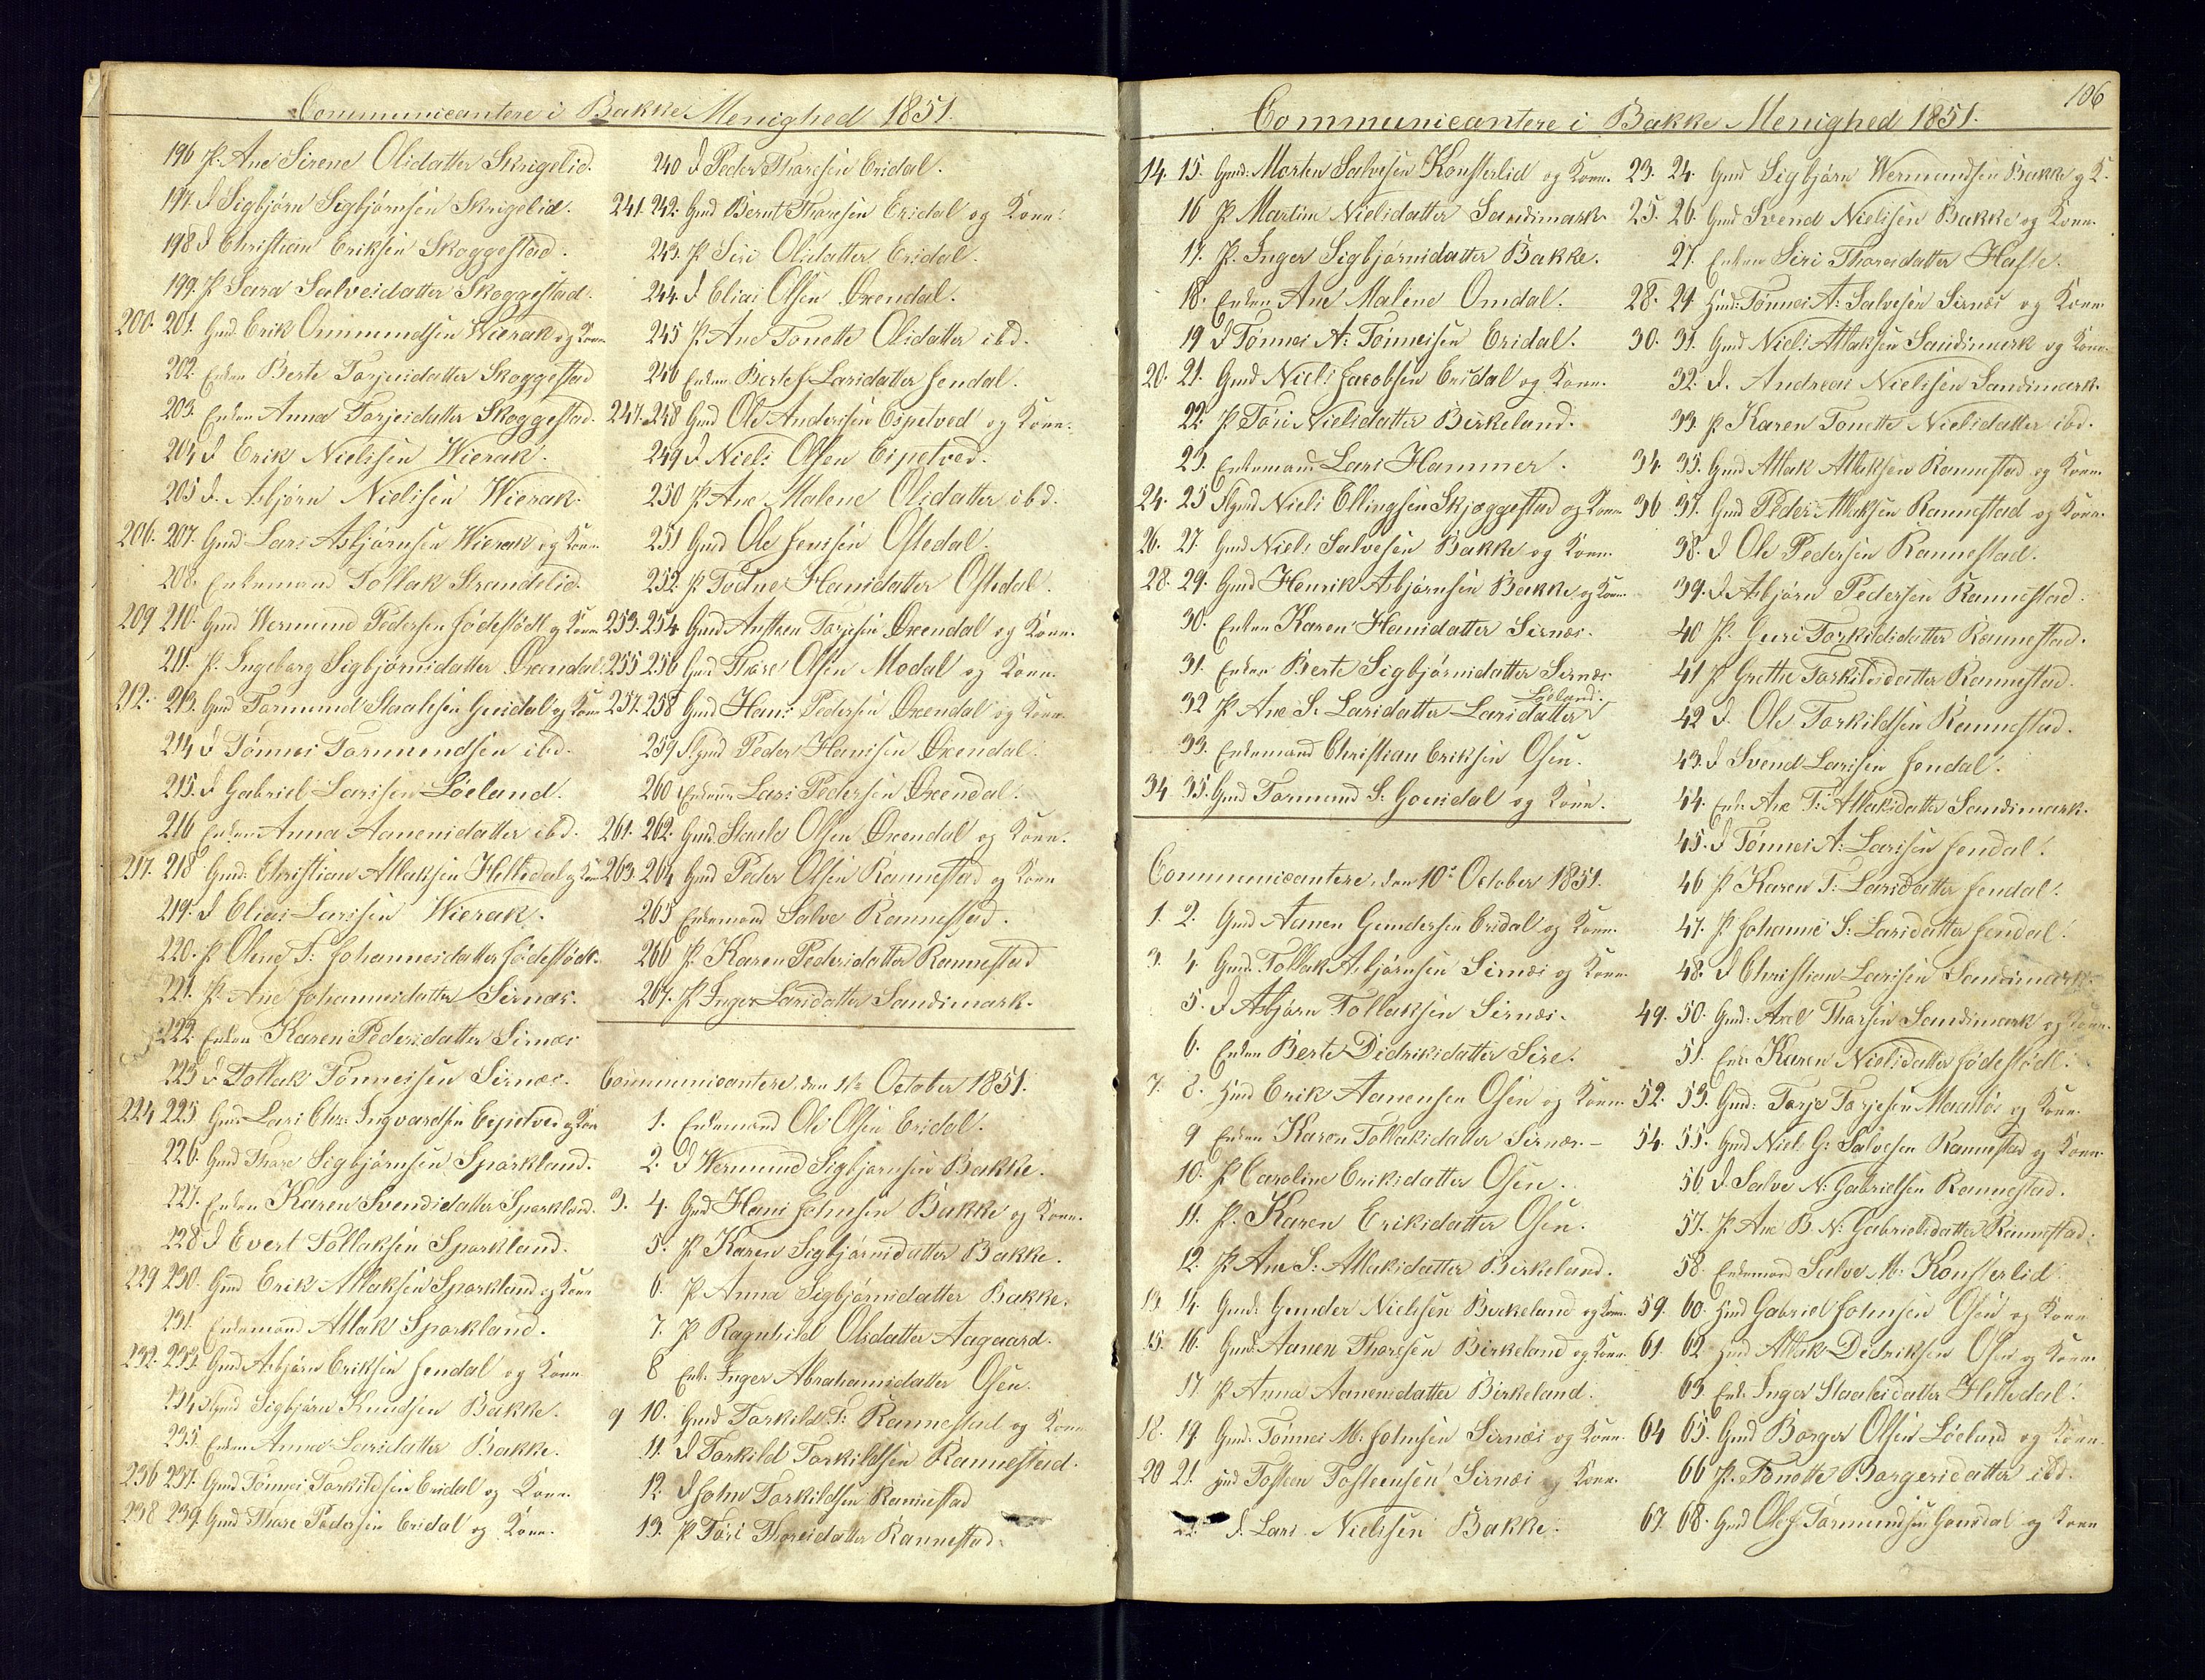 Communicantere i Bakke Menighed 1851.
196 P. Ane Sirene Olsdatter Skrigelid.
197. D Sigbjørn Sigbjørnsen Skrigelid.
198 D Christian Eriksen Skoggestad.
199. P Sara Salvesdatter Skoggestad.
200. 201. Gmd. Erik Ommundsen Wierak og Kone
202. Enken Berte Torjesdatter Skoggestad
203. Enken Anna Torjesdatter Skoggestad.
204 D Erik Nielssen Wierak.
205 D. Asbjørn Nielssen Wierak.
206. 207. Gmd: Lars Asbjørnsen Wierak og Kone.
208. Enkemand Tollak Strandelid.
209 210. Gmd Wermund Pedersen Fødestødt og Kone
211. P. Ingeborg Sigbjørnsdatter Oxendal.
212. 213. Gmd Tormund Staalesen Gousdal og Kone
214 D Tønnes Tormundsen ibd.
215. D Gabriel Larssen Löeland.
216 Enken Anna Aanensdatter ibd.
217. 218 Gmd: Christian Atlaksen Helledal og Kone
219. D Elias Larssen Wierak.
220. P Olene T: Johannesdatter Fødestødt.
221. P. Ane Johannesdatter Sirnæs.
222. Enken Karen Pedersdatter Sirnæs
223 D Tollak Tønnessen Sirnæs.
224 225. Gmd Lars Chr: Ingvardsen Espetved og Kone
226. Gmd Thore Sigbjørnsen Sparkland.
227. Enken Karen Svendsdatter Sparkland.
228 D Evert Tollaksen Sparkland.
229 230. Gmd Erik Atlaksen Sparkland og Kone
231. Enkemand Atlak Sparkland.
232. 233. Gmd Asbjørn Eriksen Jendal og Kone
234 Ngmd Sigbjørn Knudsen Bakke.
235. Enken Anna Larsdatter Bakke.
236 237. Gmd Tønnes Torkildsen Eridal og Kone.
238 239. Gmd Thore Pedersen Eridal og Kone.
240 D Peder Thoresen Eridal.
241. 242. Gmd Bernt Thoresen Eridal og Kone.
243. P Siri Olsdatter Eridal.
244. D Elias Olsen Oxendal.
245 P Ane Tonette Olsdatter ibd.
246 Enken Berte J Larsdatter Jendal.
247. 248 Gmd Ole Anderssen Espetved og Kone.
249 D Niels Olsen Espetved.
250 P Ane Malene Olsdatter ibd.
251 Gmd Ole Jenssen Oftedal.
252. P Todne Hansdatter Oftedal.
253. 254 Gmd Austen Torjesen Oxendal og Kone.
255 256 Gmd Thore Olsen Modal og Kone.
257. 258 Gmd Hans Pedersen Oxendal og Kone.
259 Ngmd Peder Hanssen Oxendal.
260 Enkem Lars Pedersen Oxendal.
261. 262. Gmd. Staale Olsen Oxendal og Kone.
263. 264 Gmd Peder Olsen Rannestad og Kone
265 Enkemand Salve Rannestad.
266 P. Karen Pedersdatter Rannestad
267. P Inger Larsdatter Sandsmark.
Communicantere den 1ste October 1851.
1. Enkemand Ole Olsen Eridal.
2. D Wermund Sigbjørnsen Bakke.
3. 4. Gmd Hans Johnsen Bakke og Kone.
5. P Karen Sigbjørnsdatter Bakke.
6. P Anna Sigbjørnsdatter Bakke.
7. P Ragnhild Olsdatter Aagaard.
8 Enk. Inger Abrahamsdatter Osen.
9 10. Gmd Torkild T: Rannestad og Kone
11. D Torkild Torkildsen Rannestad.
12. D John Torkildsen Rannestad
13. P Tøri Thoresdatter Rannestad.
106
Communicantere i Bakke Menighed 1851.
14. 15. Gmd: Morten Salvesen Konsterlid og Kone.
16 P Martine Nielsdatter Sandsmark
17. P. Inger Sigbjørnsdatter Bakke.
18. Enken Ane Malene Omdal.
19 D Tønnes A: Tønnessen Eridal.
20. 21. Gmd Niels Jacobsen Eridal og Kone.
22. P Tøri Nielsdatter Birkeland.
23. Enkemand Lars Hammer.
24. 25 Ngmd Niels Ellingsen Skjøggestad og Kone
26. 27. Gmd Niels Salvesen Bakke og Kone.
28. 29. Gmd Henrik Asbjørnsen Bakke og Kone.
30. Enken Karen Hansdatter Sirnæs.
31. Enken Berte Sigbjørnsdatter Sirnæs
Löeland.
32 P Ane S. Larsdatter Larsdatter
33. Enkemand Christian Eriksen Osen.
34 35. Gmd Tormund S. Gousdal og Kone.
Communicantere, den 10de October 1851.
1. 2. Gmd Aanen Gundersen Eridal og Kone.
3. 4. Gmd. Tollak Asbjørnsen Sirnæs og Kone.
5. D Asbjørn Tollaksen Sirnæs.
6. Enken Berte Didriksdatter Sire.
7. 8. Hmd Erik Aanensen Osen og Kone.
9 Enken Karen Tollaksdatter Sirnæs. -
10. P Caroline Eriksdatter Osen.
11. P. Karen Eriksdatter Osen.
12. P Ane S: Atlaksdatter Birkeland.
13. 14. Gmd: Gunder Nielssen Birkeland og Kone.
15. 16. Gmd: Aanen Thoresen Birkeland og Kone.
17 P Anna Aanensdatter Birkeland.
18. 19. Gmd: Tønnes M. Johnsen Sirnæs og Kone.
20 21. Hmd Tosteen Tosteensen Sirnæs og Kone.
22. D. Lars Nielssen Bakke.
23. 24. Gmd Sigbjørn Wermundsen Bakke og K.
25. 26. Gmd Svend Nielssen Bakke og Kone.
27. Enken Siri Thoresdatter Hafte.
28. 29. Hmd: Tønnes A: Salvesen Sirnæs og Kone
30. 31. Gmd Niels Atlaksen Sandsmark og Kone.
32. D. Andreas Nielssen Sandsmark.
33. P Karen Tonette Nielsdatter ibd.
34. 35. Gmd Atlak Atlaksen Rannestad og Kone.
36 37. Gmd Peder Atlaksen Rannestad og Kone.
38. D Ole Pedersen Rannestad.
39. D Asbjørn Pedersen Rannestad.
40 P. Guri Torkildsdatter Rannestad.
41 P Grethe Torkildsdatter Rannestad.
42 D. Ole Torkildsen Rannestad.
43. D Svend Larssen Jendal.
44. Enk. Ane T: Atlaksdatter Sandsmark.
45. D Tønnes A: Larssen Jendal.
46 P Karen T: Larsdatter Jendal.
47. P Johanne S: Larsdatter Jendal.
48. D Christian Larssen Sandsmark.
49. 50. Gmd: Axel Thorsen Sandsmark og Kone.
51. Enk: Karen Nielsdatter Fødestødt.
52. 53. Gmd: Torje Torjesen Maaløs og Kone.
54. 55. Gmd Niels G: Salvesen Rannestad og Kone.
56. D. Salve N: Gabrielsen Rannestad.
57. P Ane B. N: Gabrielsdatter Rannestad.
58. Enkemand Salve M: Konsterlid
59. 60. Hmd Gabriel Johnsen Osen og Kone
61. 62 Hmd Atlak Didriksen Osen og Kone
63. Enk. Inger Staalesdatter Helledal.
64 65. Gmd Borger Olsen Löeland og Kone.
66 P. Tonette Borgersdatter ibd.
67. 68. Gmd Ole J Tormundsen Gousdal og Kone